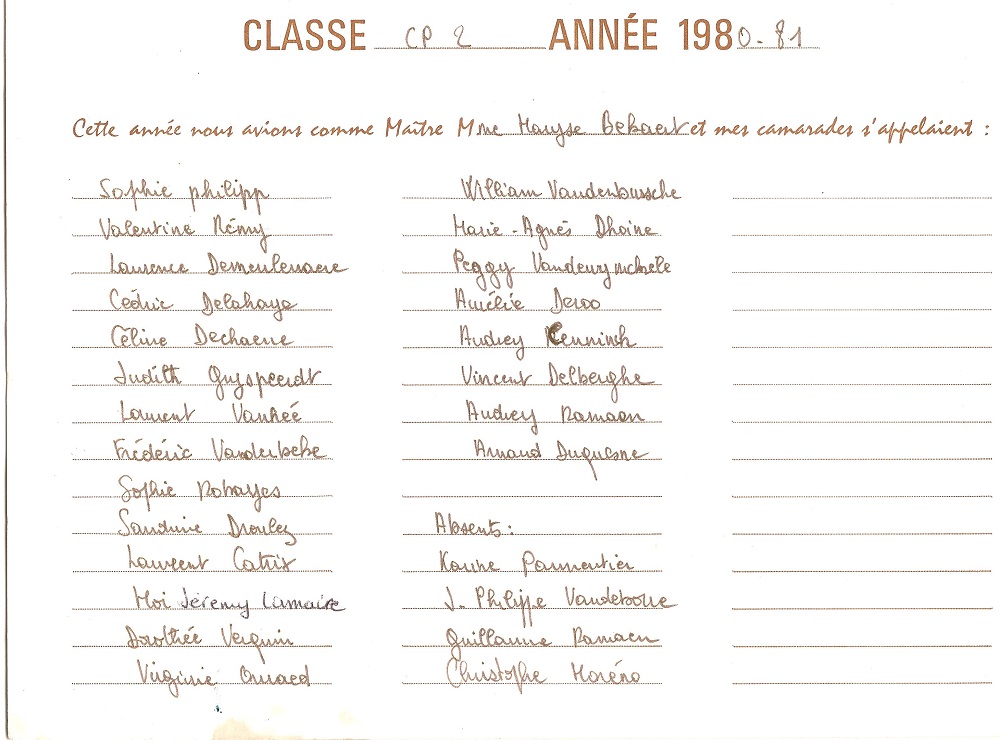 CLASSE CP 2 ANNÉE 1980-81
Cette année nous avions comme Maître Mme Maryse Bekaert et mes camarades s'appelaient :
Sophie philipp
Valentine Rémy
Laurence Demeulenaere
Cédric Delahaye
Céline Dechaene
Judith Gryspeerdt
Laurent Vanhée
Frédéric Vanderbeke
Sophie Robasyes
Sandrine Droulez
Laurent Catrix
Moi Jérémy Lamaire
Dorothée Verquin
Virginie Onraed
William Vandenbussche
Marie-Agnès Dhoine
Peggy
Amélie Deroo
Audrey Kenninck
Vincent Delberghe
Audrey Ramaen
Arnaud Duquesne
Absents :
Karine Parmentier
J-Philippe
Guillaume Ramaen
Christophe Moréno